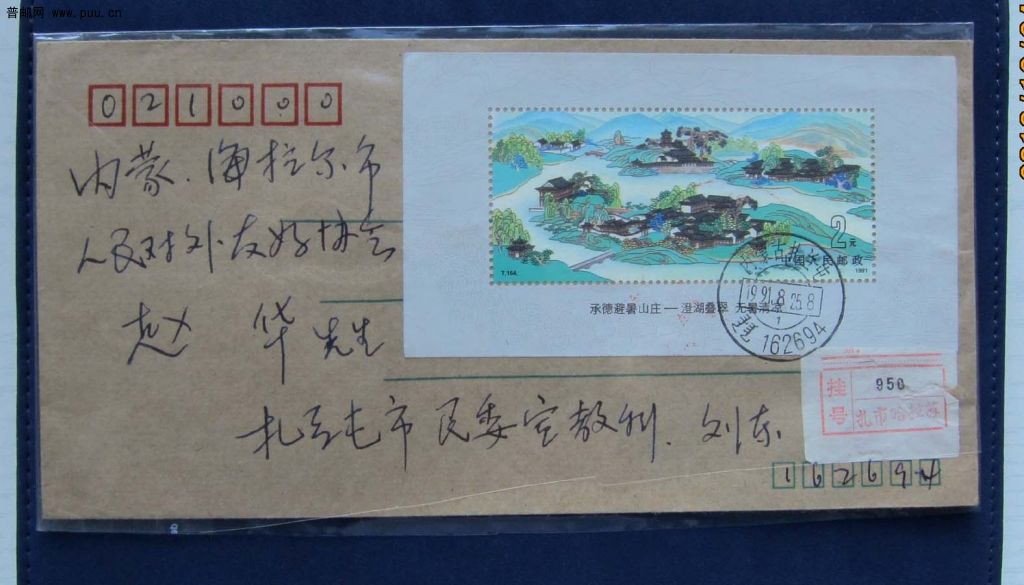 普邮网 www.puu.cn
021000
内蒙.海拉尔市
人民对外友好协会
赵 华 先生
2元
中国人民邮政
T.164.
1991
承德避暑山庄—澄湖叠翠 无暑清凉
内蒙古扎
1991.8.25.8
1
162694
挂号
950
扎市哈拉苏
扎兰屯市民委宣教科.刘东
162694